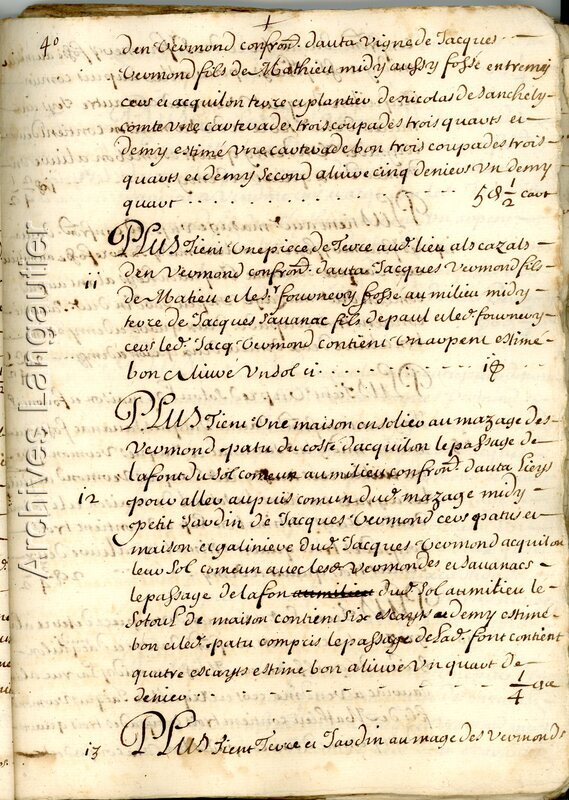 4°
den Vermond confron.t dauta vigne de Jacques
Vermond fils de Mathieu midy aussy fosse entremej
cers et acquilon terre et plantier de nicolas de Sanchely
comte une carterade trois coupades trois quarts et
demy estimé une carterade bon trois coupades trois
quarts et demy second aliure cinq deniers un demy
quart . . . . . . . . . . 5 d 1/2 cart
11
PLUS tient une piece de terre aud. lieu als cazals
den Vermond confron.t dauta Jacques Vermond fils
de Matieu et le s.r fournery fosse au milieu midy
terre de Jacques Savanac fils de paul et led. fournery
cers led. Jacq. Vermond contient un arpent estimé
bon aliure un sol ci . . . . . . . 1 s
12
PLUS tient une maison en solier au mazage des
Vermond patu du costé dacquilon le passage de
lafont du sol comeun au milieu confron.t dauta
pour aller au puis comun dud. mazage midy
petit Jardin de Jacques Vermond cers patus et
maison et galiniere dud. Jacques Vermond acquilon
leur sol comeun avec lesd. Vermondes et Savanacs
le passage de la fon dud. sol au milieu le
sotoul de maison contient six escayts et demy estimé
bon et led. patu compris le passage de lad. font contient
quatre escayts estimé bon aliure un quart de
denier . . . . . . . 1/4
13
PLUS tient terre et Jardin au mage des Vermonds
Archives Langautier